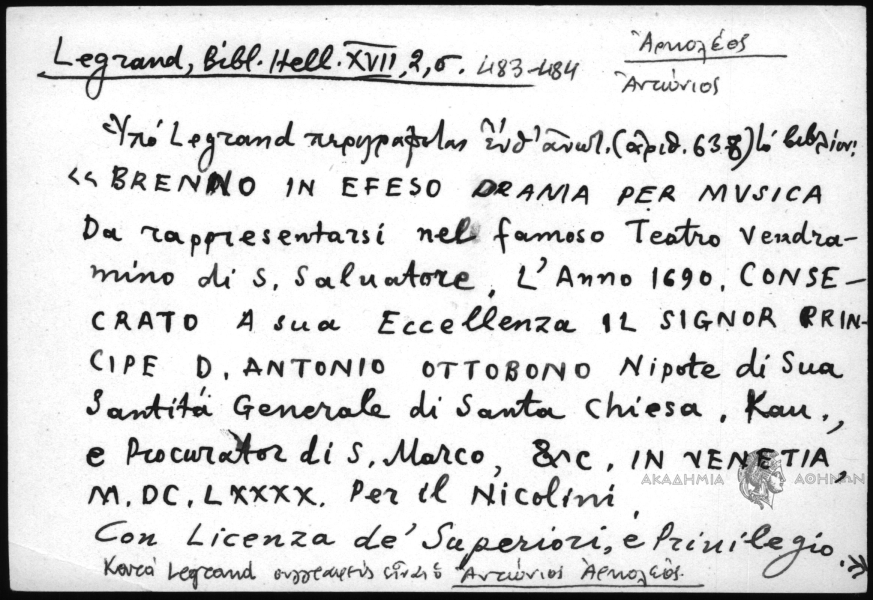 Legrand, Bibl. Hell. XVII, 2, σ. 483-484
Ἀρκολέος
Ἀντώνιος
Ὑπό Legrand περιγράφεται ἐνθ' ἀνωτ. (ἀριθ. 638) τό βιβλίον:
«BRENNO IN EFESO DRAMA PER MVSICA
Da rappresentarsi nel famoso Teatro Vendra-
mino di S. Saluatore, L'Anno 1690. CONSE-
CRATO A sua Eccellenza IL SIGNOR PRIN-
CIPE D. ANTONIO OTTOBONO Nipote di Sua
Santitá Generale di Santa Chiesa, Kau.,
e Procurator di S. Marco, &c, IN VENETIA,
M. DC. LXXXX. Per il Nicolini,
Con Licenza de' Superiori, e Priuilegio.»
Κατά Legrand συγγραφεύς εἶναι ὁ Ἀντώνιος Ἀρκολέος.
ΑΚΑΔΗΜΙΑ ΑΘΗΝΩΝ